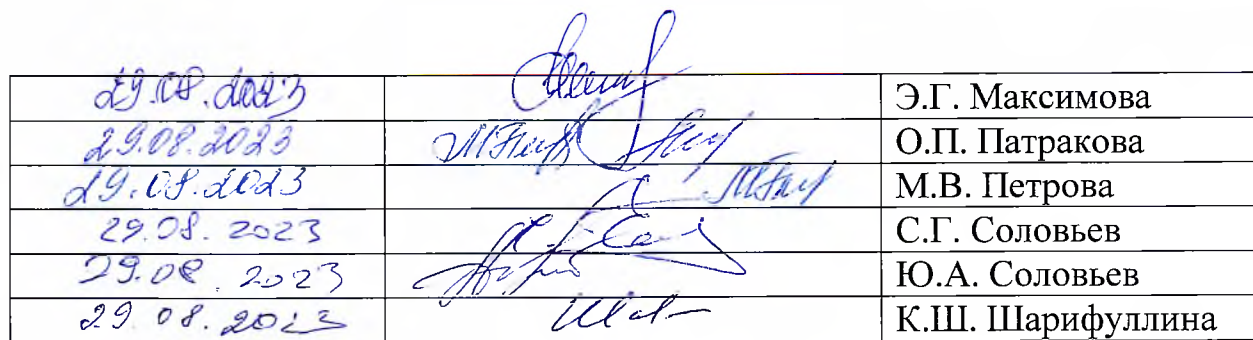 29.08.2023 Э.Г. Максимова
29.08.2023 О.П. Патракова
29.08.2023 М.В. Петрова
29.08.2023 С.Г. Соловьев
29.08.2023 Ю.А. Соловьев
29.08.2023 К.Ш. Шарифуллина